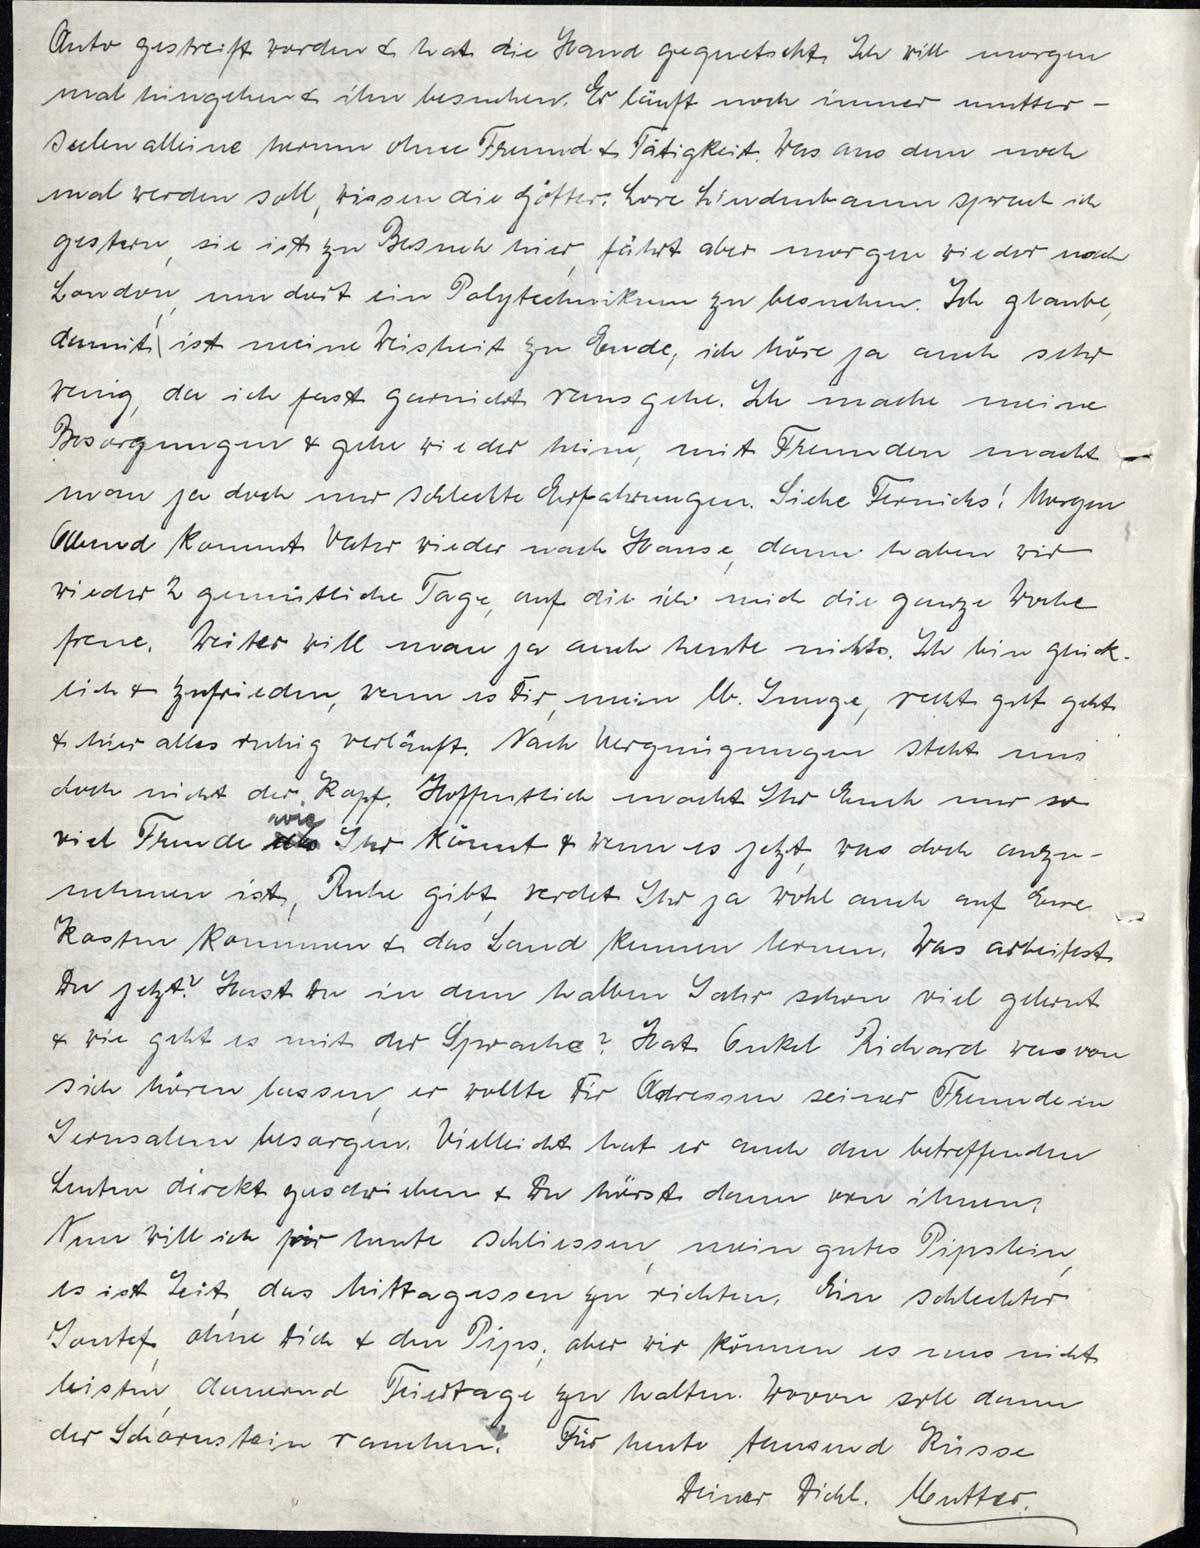 Auto gestreift worden & hat die Hand gequetscht. Ich will morgen
mal hingehen & ihn besuchen. Er läuft noch immer mutter-
seelenalleine herum ohne Freund & Tätigkeit. Was aus dem noch
mal werden soll, wissen die Götter. Lore Lindenbaum sprach ich
gestern, sie ist zu Besuch hier, fährt aber morgen wieder nach
London, um dort ein Polytechnikum zu besuchen. Ich glaube,
damit ist meine Weisheit zu Ende, ich höre ja auch sehr
wenig, da ich fast garnicht rausgehe. Ich mache meine
Besorgungen & gehe wieder heim, mit Freunden macht
man ja doch nur schlechte Erfahrungen. Siehe Fernichs! Morgen
Abend kommt Vater wieder nach Hause, dann haben wir
wieder 2 gemütliche Tage, auf die ich mich die ganze Woche
freue. Weiter will man ja auch heute nichts. Ich bin glück-
lich & zufrieden, wenn es Dir, mein lb. Junge, recht gut geht
& hier alles ruhig verläuft. Nach Vergnügungen steht uns
doch nicht der Kopf. Hoffentlich macht Ihr Euch nur so
viel Freude wie Ihr könnt & wenn es jetzt, was doch anzu-
nehmen ist, Ruhe gibt, werdet Ihr ja wohl auch auf Eure
Kosten kommen & das Land kennen lernen. Was arbeitest
Du jetzt? Hast Du in dem halben Jahr schon viel gelernt
& wie geht es mit der Sprache? Hat Onkel Richard was von
sich hören lassen, er wollte Dir Adressen seiner Freunde in
Jerusalem besorgen. Vielleicht hat er auch den betreffenden
Leuten direkt geschrieben & Du hörst dann von ihnen.
Nun will ich für heute schliessen, mein gutes Pipslein,
es ist Zeit, das Mittagessen zu richten. Ein schlechter
Jontef, ohne Dich & den Pips, aber wir können es uns nicht
leisten, dauernd Feiertage zu halten. Wovon soll dann
der Schornstein rauchen. Für heute tausend Küsse
Deiner Dichl. Mutter.